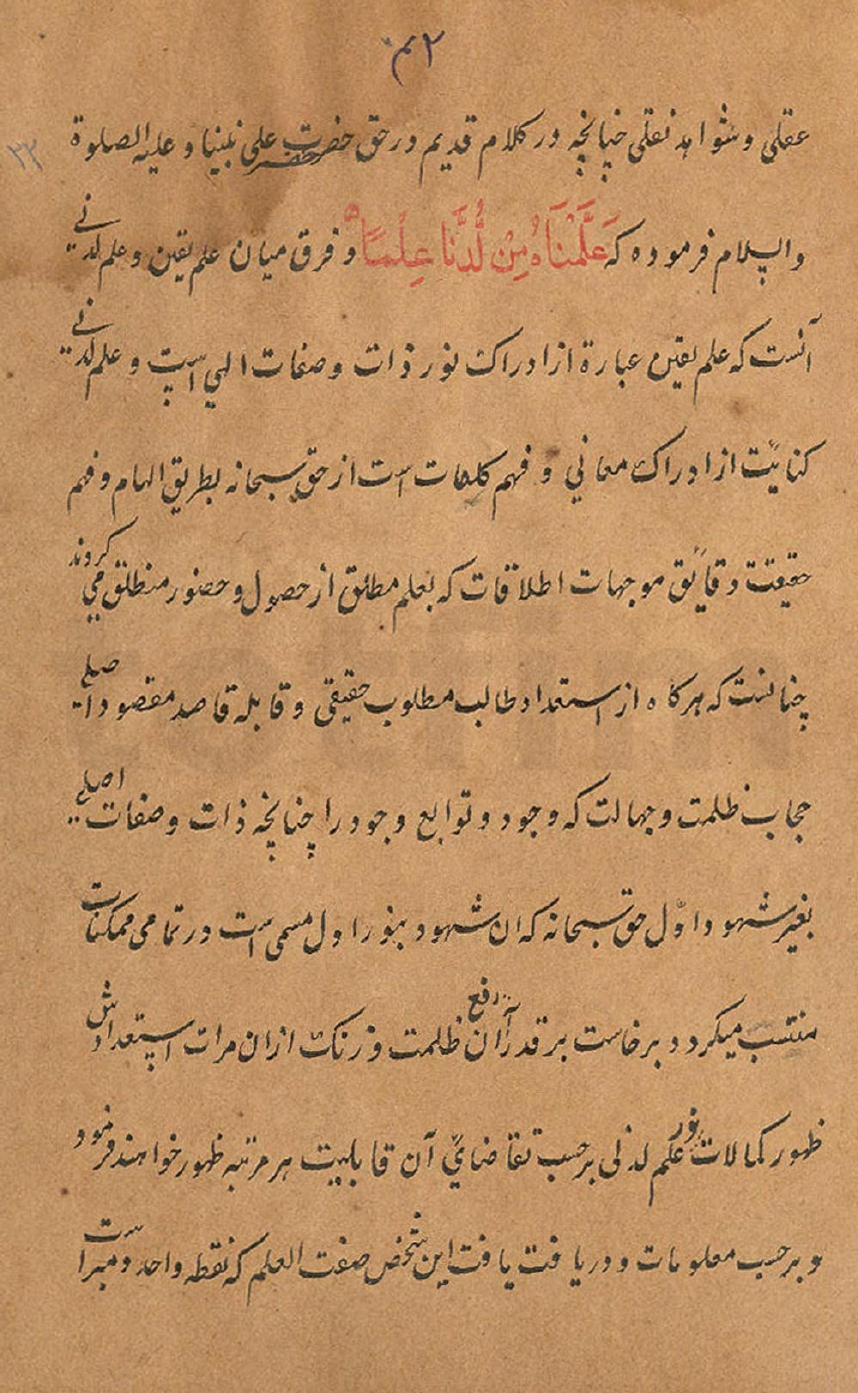 ۲م
۳۳
عقلی و شواهد نقلی چنانچه در کلام قدیم در حق حضرت خضر علی نبینا و علیه الصلوة
والسلام فرموده که عَلَّمْنَاهُ مِنْ لَّدُنَّا عِلْمًا و فرق میان علم یقین و علم لدنی
آنست که علم یقین عبارة از ادراک نور ذات و صفات الهی است و علم لدنی
کنایت از ادراک معانی و فهم کلمات است از حق سبحانه بطریق الهام و فهم
حقیقت دقایق موجهات اطلاقات که بعلم مطلق از حصول و حضور منطلق می کروند
چنانست که هرکاه از استعداد طالب مطلوب حقیقی و قابله قاصد مقصود اصلی
حجاب ظلمت و جهالت که وجود و توابع وجود را چنانچه ذات و صفات اصلی
بغیر شهود اول حق سبحانه که ان شهود بنور اول مسمی است در تمامی ممکنات
منتسب میکردد برخاست بر قدر رفع آن ظلمت و زنک از ان مرات استعدادش
ظهور کمالات نور علم لدنی برحسب تقاضای آن قابلیت هر مرتبه ظهور خواهند فرمود
و برحسب معلومات و دریافت یافت این شخص صفت العلم که نقطه واحد و مبراست